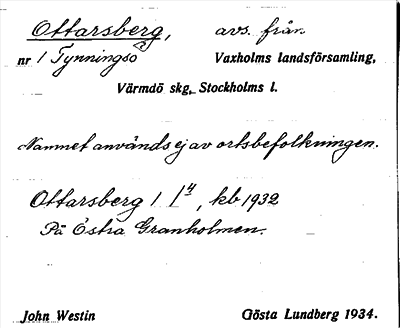 Ottarsberg, avs. från
nr 1 Tynningsö Vaxholms landsförsamling,
Värmdö skg, Stockholms l.
Namnet användes ej av ortsbefolkningen.
Ottarsberg 1 1⁴, kb 1932
På Östra Granholmen.
John Westin Gösta Lundberg 1934.